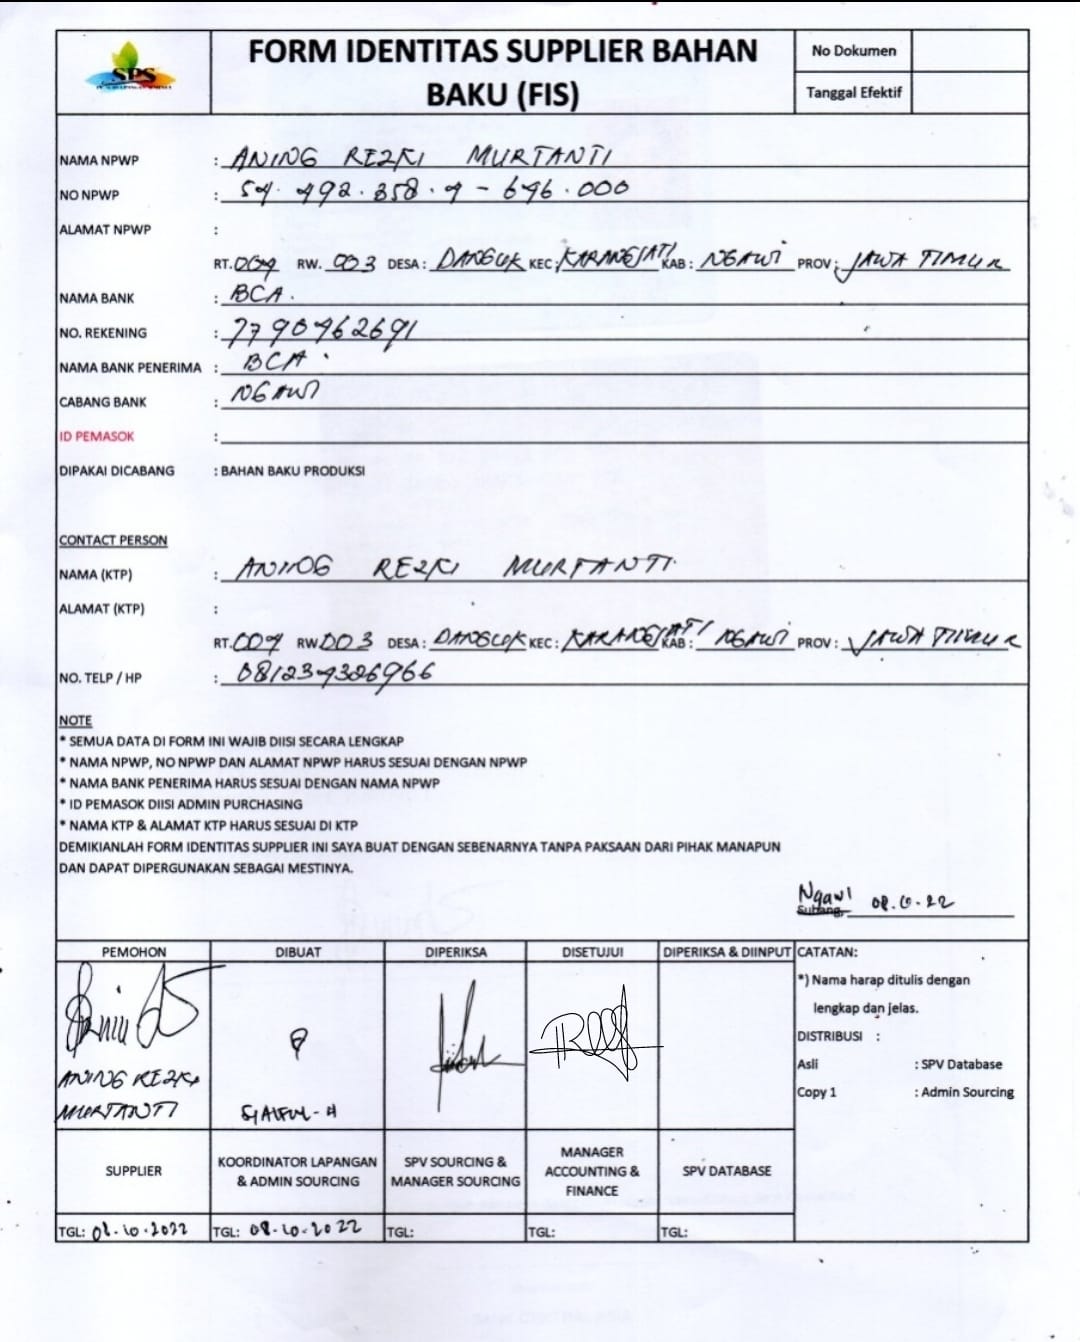 SPS
FORM IDENTITAS SUPPLIER BAHAN
BAKU (FIS)
No Dokumen
Tanggal Efektif
NAMA NPWP : ANING REZKI MURTANTI
NO NPWP : 54.492.358.9-646.000
ALAMAT NPWP :
RT. 004 RW. 003 DESA : DANGUK KEC : KARANGJATI KAB : NGAWI PROV : JAWA TIMUR
NAMA BANK : BCA.
NO. REKENING : 7790462691
NAMA BANK PENERIMA : BCA.
CABANG BANK : NGAWI
ID PEMASOK :
DIPAKAI DICABANG : BAHAN BAKU PRODUKSI
CONTACT PERSON
NAMA (KTP) : ANING REZKI MURTANTI.
ALAMAT (KTP) :
RT. 004 RW 003 DESA : DANGUK KEC : KARANGJATI KAB : NGAWI PROV : JAWA TIMUR
NO. TELP / HP : 081234326966
NOTE
* SEMUA DATA DI FORM INI WAJIB DIISI SECARA LENGKAP
* NAMA NPWP, NO NPWP DAN ALAMAT NPWP HARUS SESUAI DENGAN NPWP
* NAMA BANK PENERIMA HARUS SESUAI DENGAN NAMA NPWP
* ID PEMASOK DIISI ADMIN PURCHASING
* NAMA KTP & ALAMAT KTP HARUS SESUAI DI KTP
DEMIKIANLAH FORM IDENTITAS SUPPLIER INI SAYA BUAT DENGAN SEBENARNYA TANPA PAKSAAN DARI PIHAK MANAPUN
DAN DAPAT DIPERGUNAKAN SEBAGAI MESTINYA.
Ngawi
Subang, 08.10.22
PEMOHON DIBUAT DIPERIKSA DISETUJUI DIPERIKSA & DIINPUT CATATAN:
*) Nama harap ditulis dengan
lengkap dan jelas.
DISTRIBUSI :
Asli : SPV Database
Copy 1 : Admin Sourcing
ANING REZKI
MURTANTI
SYAIFUL-H
SUPPLIER
KOORDINATOR LAPANGAN
& ADMIN SOURCING
SPV SOURCING &
MANAGER SOURCING
MANAGER
ACCOUNTING &
FINANCE
SPV DATABASE
TGL: 08.10.2022 TGL: 08.10.2022 TGL: TGL: TGL: